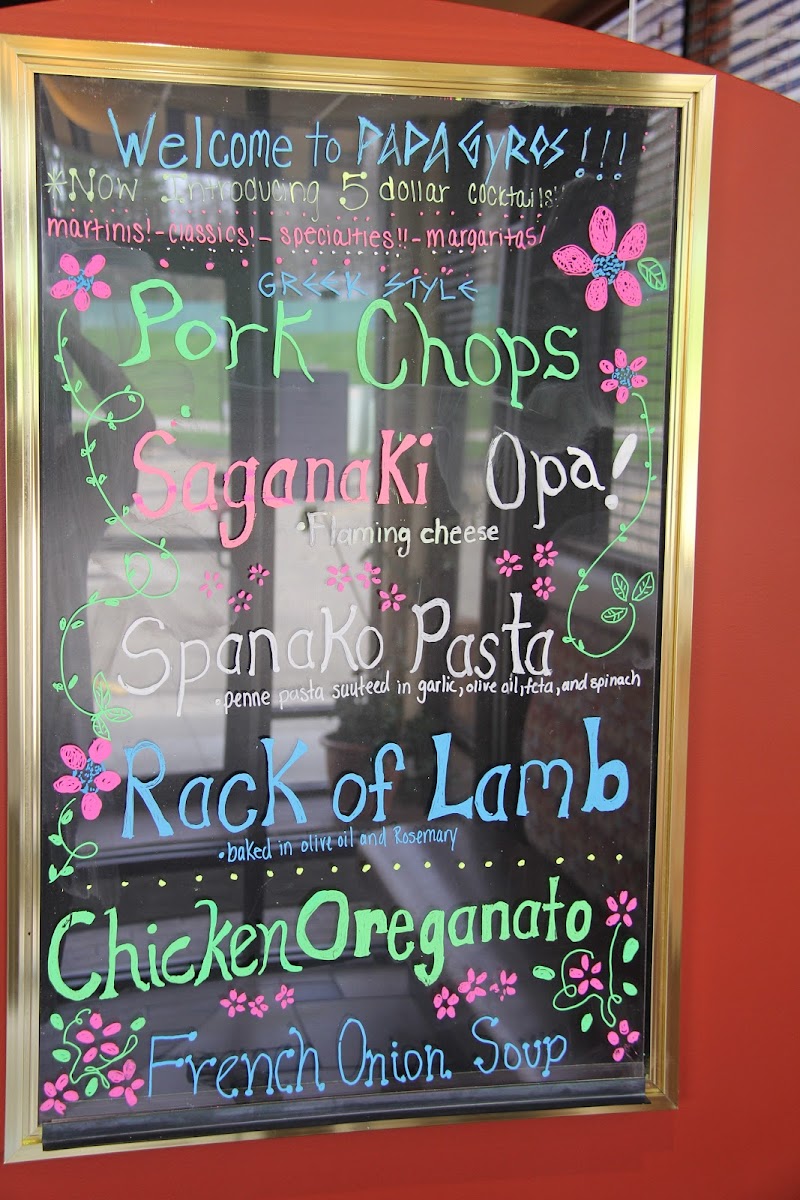 Welcome to PAPA GYROS !!!
*Now Introducing 5 dollar cocktails!!
martinis! - classics! - specialties!! - margaritas!
GREEK STYLE
Pork Chops
Saganaki Opa!
•Flaming cheese
Spanako Pasta
•penne pasta sauteed in garlic, olive oil, feta, and spinach
Rack of Lamb
•baked in olive oil and Rosemary
Chicken Oreganato
French Onion Soup